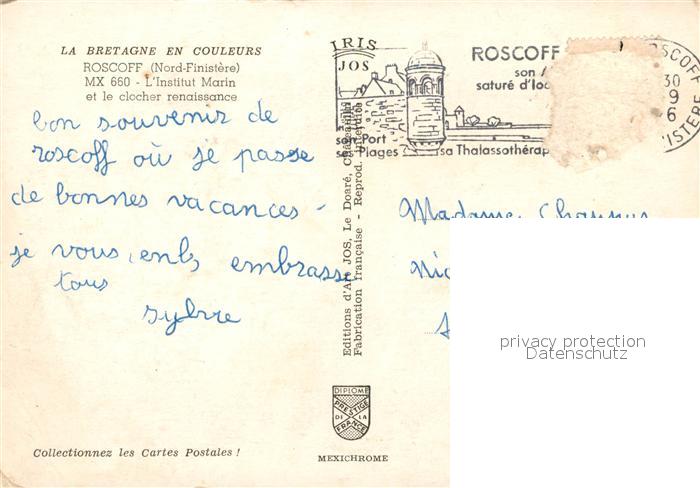 LA BRETAGNE EN COULEURS
ROSCOFF (Nord-Finistère)
MX 660 - L'Institut Marin
et le clocher renaissance
bon souvenir de
roscoff où je passe
de bonnes vacances -
je vous embrasse
tous
Sylvie
Collectionnez les Cartes Postales !
Editions d'Art JOS, Le Doaré, Châteaulin
Fabrication française - Reprod. interdite
IRIS
JOS
ROSCOFF
son
saturé d'iod
son Port
ses Plages
sa Thalassothérap
ROSCOFF
30
9
6
ISTÈRE
Madame
DIPLOME
PRESTIGE
DE LA
FRANCE
MEXICHROME
privacy protection
Datenschutz